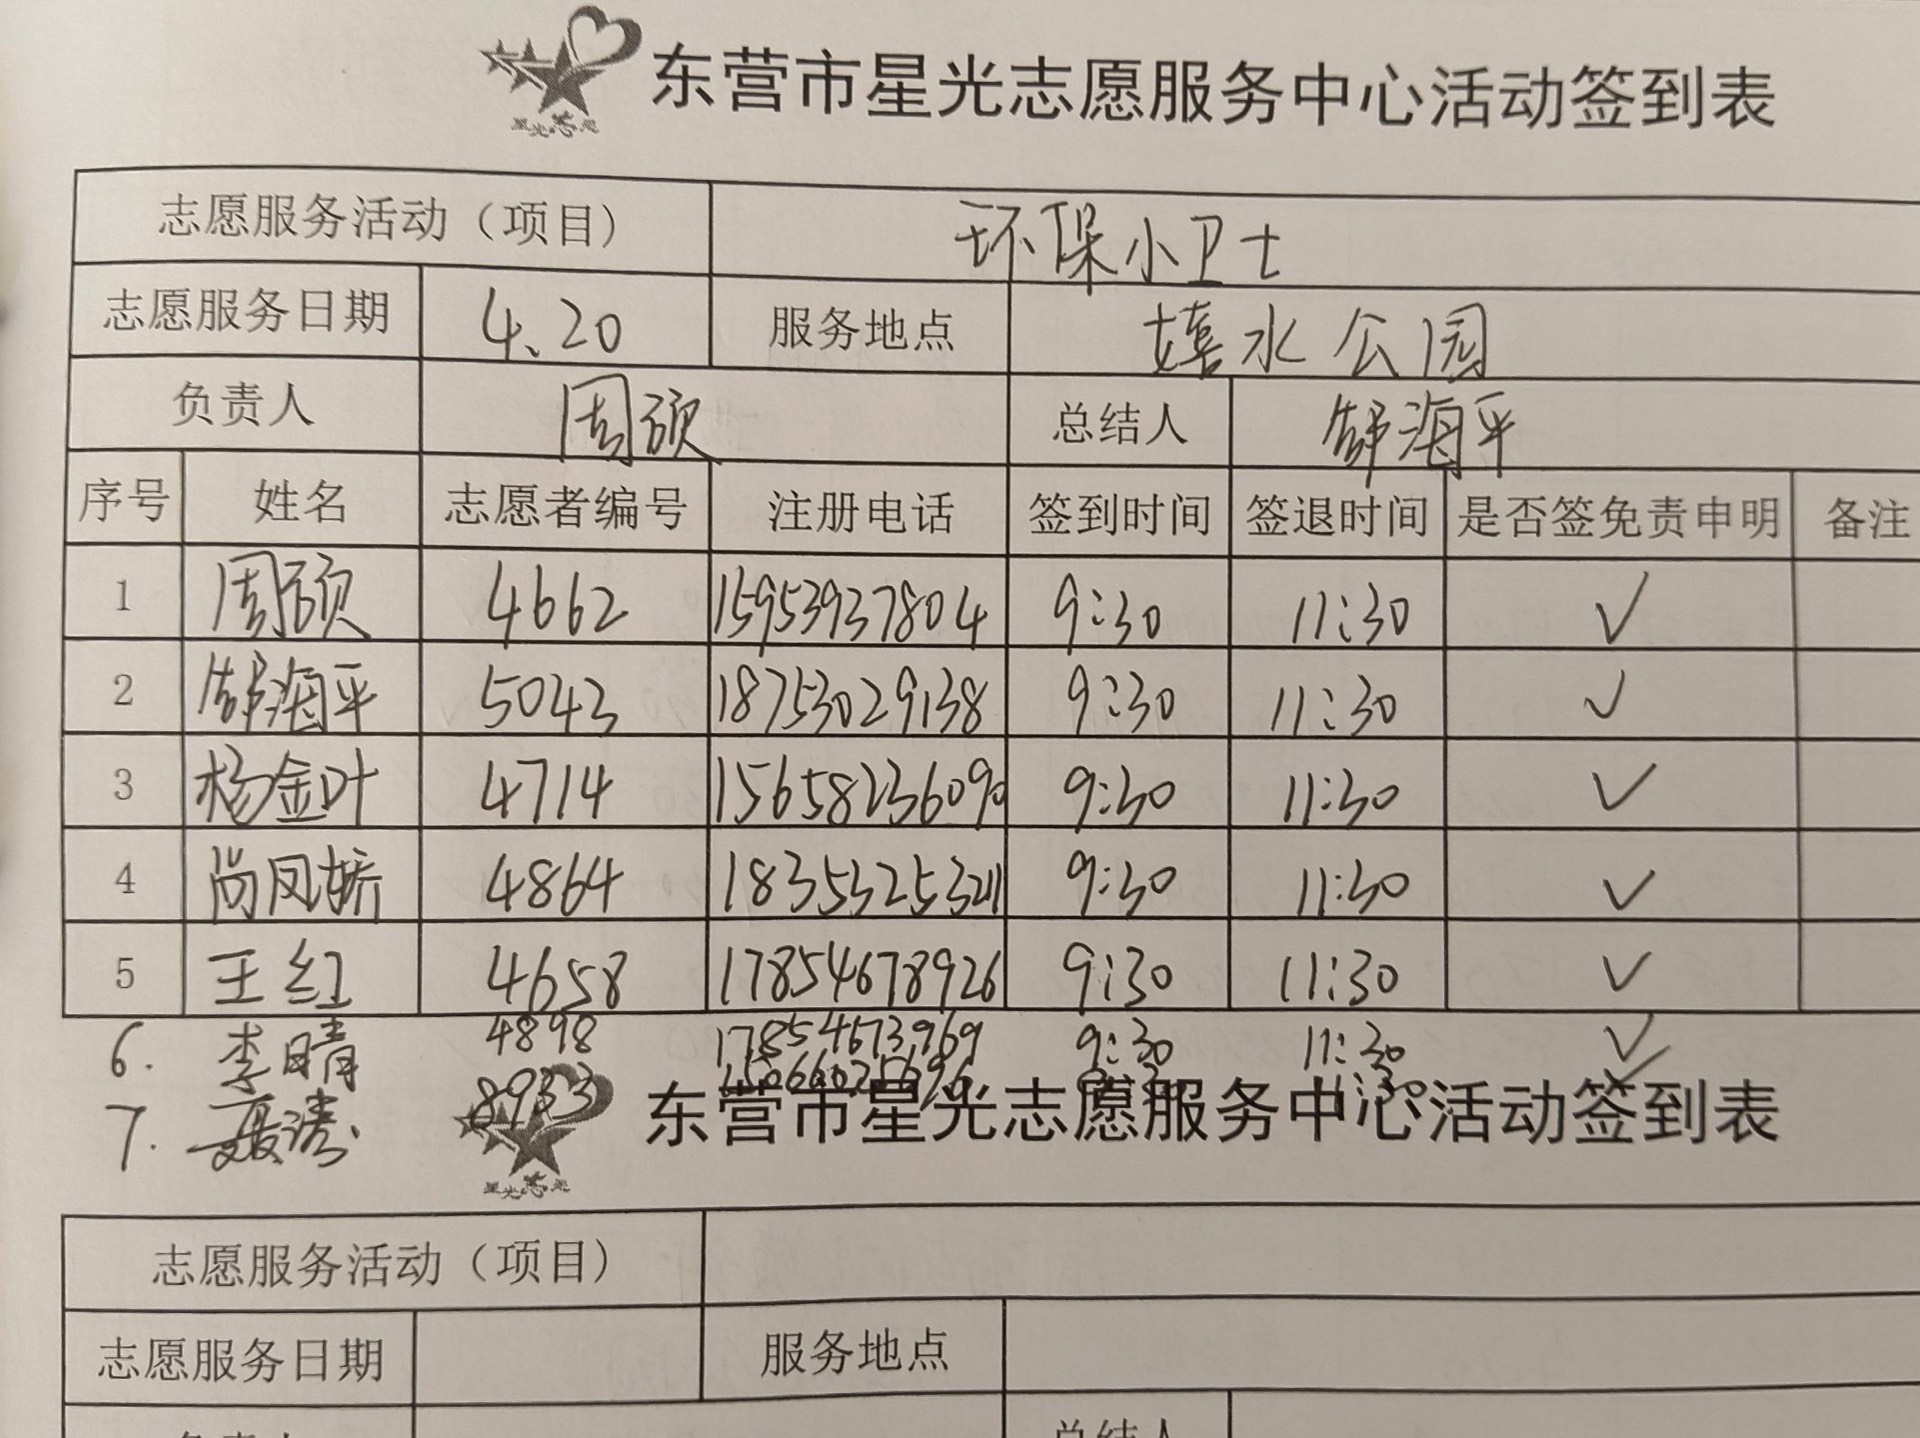 东营市星光志愿服务中心活动签到表
志愿服务活动（项目） 环保小卫士
志愿服务日期 4.20 服务地点 嬉水公园
负责人 周硕 总结人 舒海平
序号 姓名 志愿者编号 注册电话 签到时间 签退时间 是否签免责申明 备注
1 周硕 4662 15953937804 9:30 11:30 ✓
2 舒海平 5043 18753029138 9:30 11:30 ✓
3 杨金叶 4714 15658236090 9:30 11:30 ✓
4 尚凤娇 4864 18353253211 9:30 11:30 ✓
5 王红 4658 17854678926 9:30 11:30 ✓
6. 李晴 4898 17854673969 9:30 11:30 ✓
7. 聂涛 8933 ✓
东营市星光志愿服务中心活动签到表
志愿服务活动（项目）
志愿服务日期 服务地点
负责人 总结人